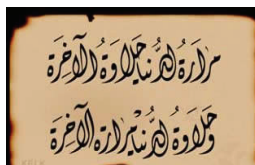 مرارة الدنيا حلاوة الآخرة
وحلاوة الدنيا مرارة الآخرة